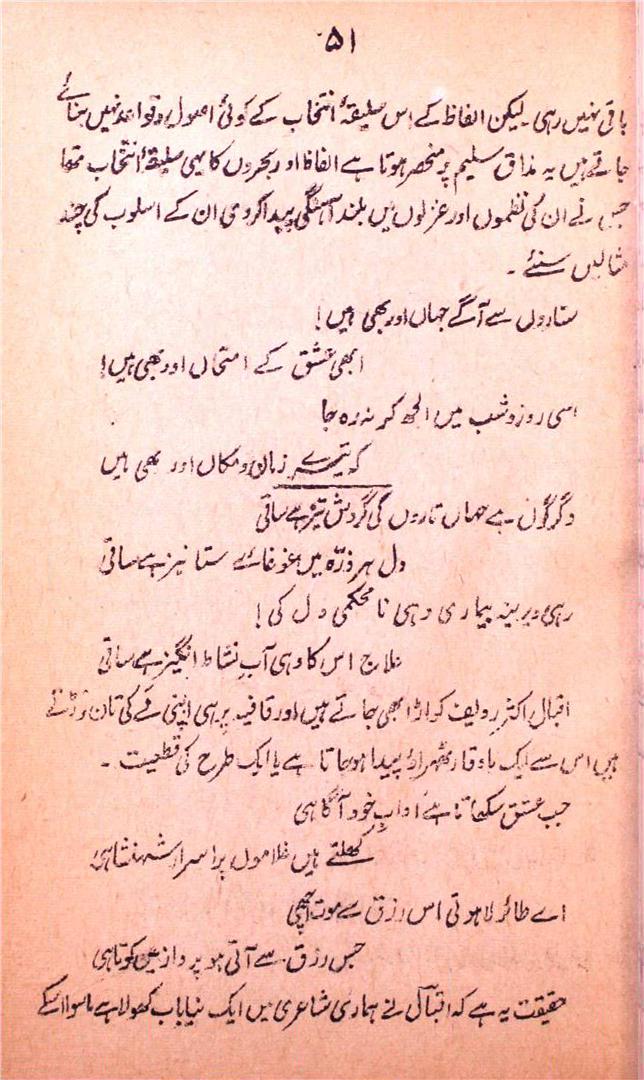 ۵۱
باقی نہیں رہی۔ لیکن الفاظ کے اس سلیقۂ انتخاب کے کوئی اصول و قواعد نہیں بنائے
جاتے ہیں یہ مذاق سلیم پر منحصر ہوتا ہے الفاظ اور بحروں کا یہی سلیقۂ انتخاب تھا
جس نے ان کی نظموں اور غزلوں میں بلند آہنگی پیدا کر دی ان کے اسلوب کی چند
مثالیں سنئے۔
ستاروں سے آگے جہاں اور بھی ہیں!
ابھی عشق کے امتحاں اور بھی ہیں!
اسی روز و شب میں الجھ کر نہ رہ جا
کہ تیرے زمان و مکاں اور بھی ہیں
دگرگوں ہے جہاں تاروں کی گردش تیز ہے ساقی
دل ہر ذرّہ میں غوغائے رستا نیز ہے ساقی
رہی دیرینہ بیماری وہی نا محکمی دل کی!
علاج اس کا وہی آبِ نشاط انگیز ہے ساقی
اقبال اکثر ردیف کو اڑا بھی جاتے ہیں اور قافیہ پر ہی اپنی لَے کی تان توڑتے
ہیں اس سے ایک باوقار ٹھہراؤ پیدا ہو جاتا ہے یا ایک طرح کی قطعیت۔
جب عشق سکھاتا ہے آدابِ خود آگاہی
کھلتے ہیں غلاموں پر اسرارِ شہنشاہی
اے طائر لاہوتی اس رزق سے موت اچھی
جس رزق سے آتی ہو پرواز میں کوتاہی
حقیقت یہ ہے کہ اقبالؔ نے ہماری شاعری میں ایک نیا باب کھولا ہے ماسوا اسکے